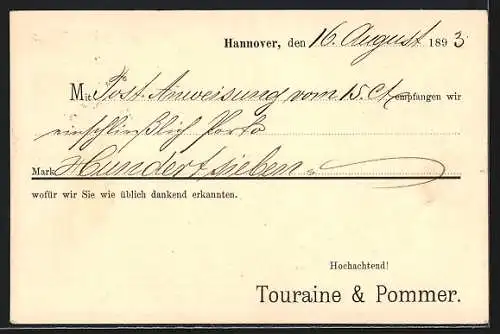 Hannover, den 16. August 1893
Mit Post-Anweisung vom 15. ct. empfangen wir
einschließlich Porto
Mark Hundertsieben
wofür wir Sie wie üblich dankend erkannten.
Hochachtend!
Touraine & Pommer.